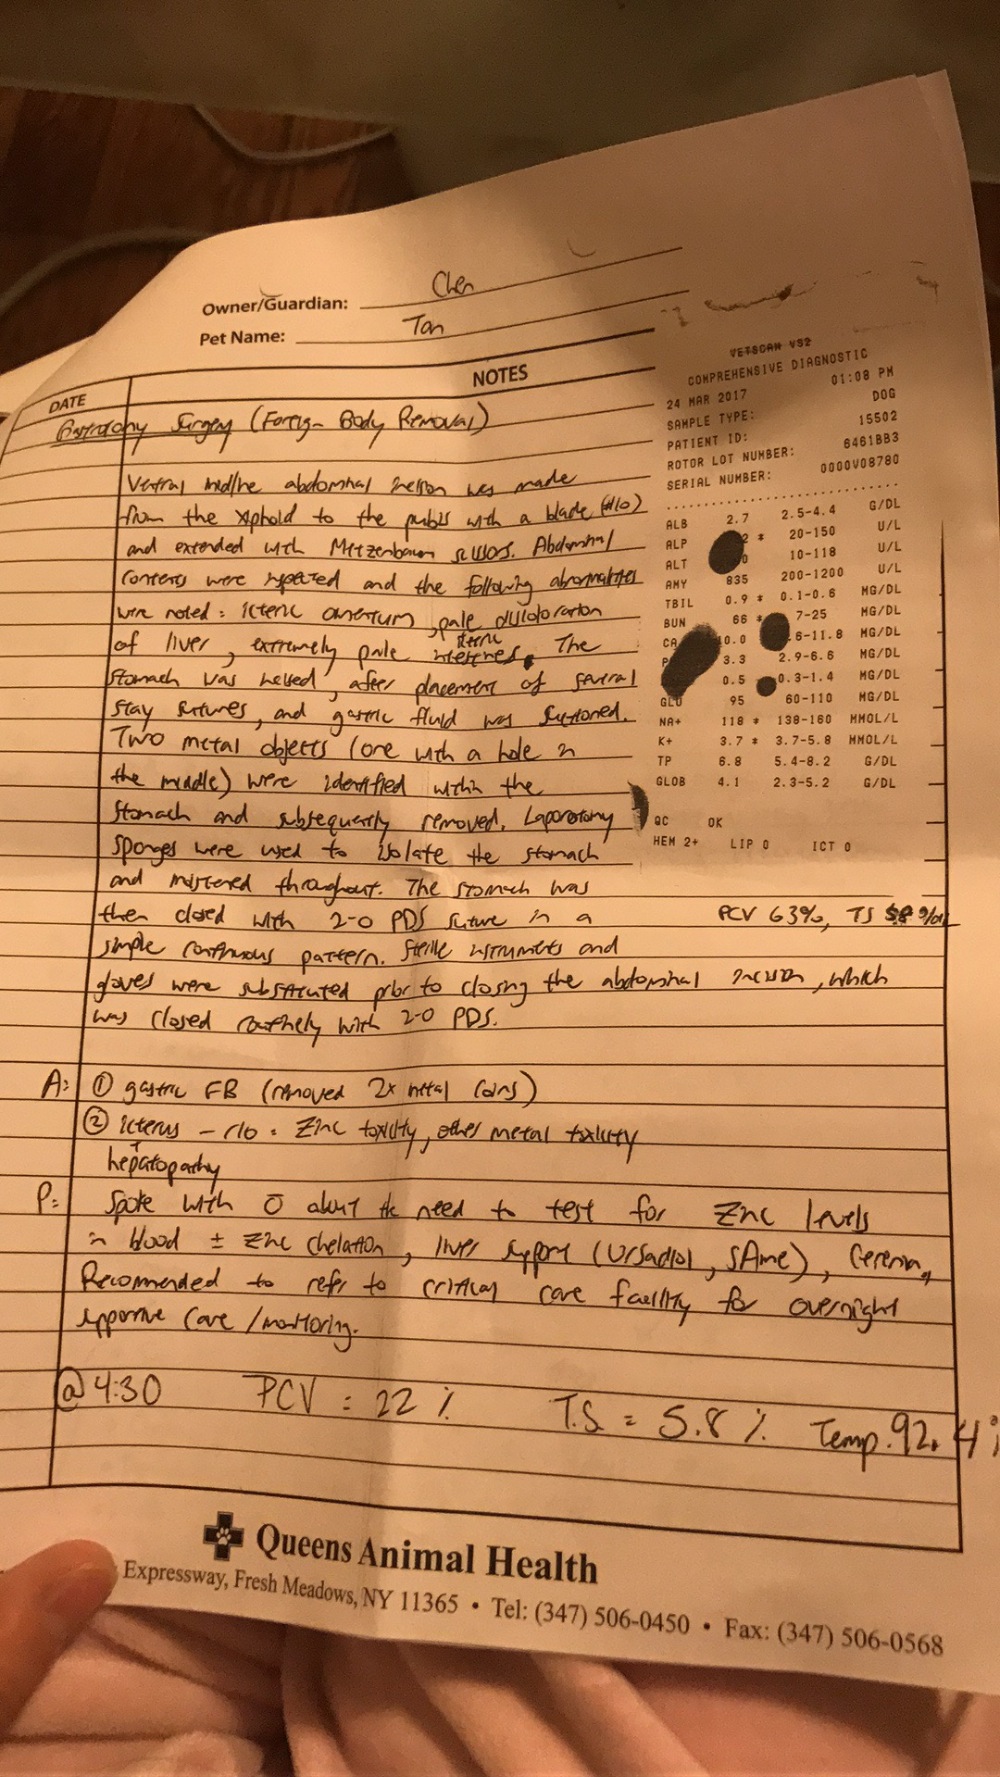 Owner/Guardian: Chen
Pet Name: Tan
DATE
NOTES
Surgery (Foreign Body Removal)
Ventral midline abdominal incision was made
from the xiphoid to the pubis with a blade (#10)
and extended with Metzenbaum scissors. Abdominal
contents were inspected and the following abnormalities
were noted: icteric omentum, pale discoloration
of liver, extremely pale icteric intestines. The
stomach was incised, after placement of several
stay sutures, and gastric fluid was suctioned.
Two metal objects (one with a hole in
the middle) were identified within the
stomach and subsequently removed. Laparotomy
sponges were used to isolate the stomach
and moistened throughout. The stomach was
then closed with 2-0 PDS suture in a
simple continuous pattern. Sterile instruments and
gloves were substituted prior to closing the abdominal incision, which
was closed routinely with 2-0 PDS.
VETSCAN VS2
COMPREHENSIVE DIAGNOSTIC
24 MAR 2017 01:08 PM
SAMPLE TYPE: DOG
PATIENT ID: 15502
ROTOR LOT NUMBER: 6461BB3
SERIAL NUMBER: 0000V08780
ALB 2.7 2.5-4.4 G/DL
ALP * 20-150 U/L
ALT 10-118 U/L
AMY 835 200-1200 U/L
TBIL 0.9 * 0.1-0.6 MG/DL
BUN 66 * 7-25 MG/DL
CA 10.0 .6-11.8 MG/DL
3.3 2.9-6.6 MG/DL
0.5 0.3-1.4 MG/DL
GLU 95 60-110 MG/DL
NA+ 118 * 138-160 MMOL/L
K+ 3.7 * 3.7-5.8 MMOL/L
TP 6.8 5.4-8.2 G/DL
GLOB 4.1 2.3-5.2 G/DL
QC OK
HEM 2+ LIP 0 ICT 0
PCV 63%, TS
A: ① gastric FB (removed 2x metal coins)
② icterus - r/o: Zinc toxicity, other metal toxicity
hepatopathy
P: Spoke with O about the need to test for Zinc levels
in blood ± Zinc chelation, liver support (Ursodiol, SAMe), Cerenia,
Recommended to refer to critical care facility for overnight
supportive care/monitoring.
@ 4:30 PCV = 22 % T.S = 5.8 % Temp. 92.4
Queens Animal Health
Expressway, Fresh Meadows, NY 11365 • Tel: (347) 506-0450 • Fax: (347) 506-0568